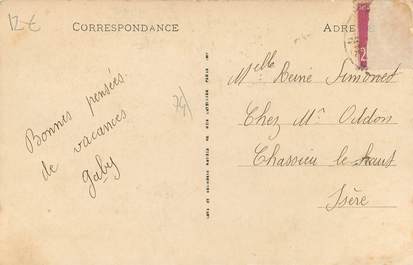 12 €
CORRESPONDANCE
Bonnes pensées
de vacances
gaby
Melle Reine Simonet
Chez Mr Oddon
Chassieu le haut
Isère